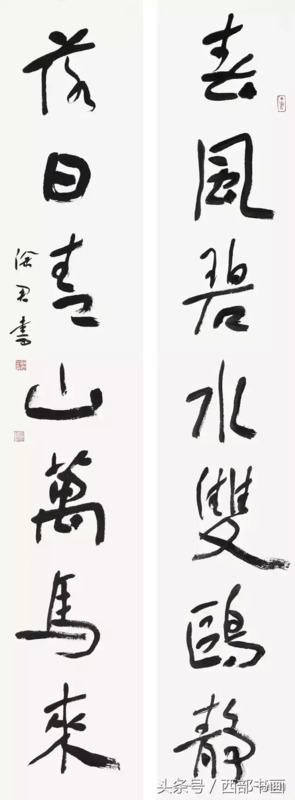 春風碧水雙鷗靜
落日青山萬馬來
涂君書
头条号/西部书画